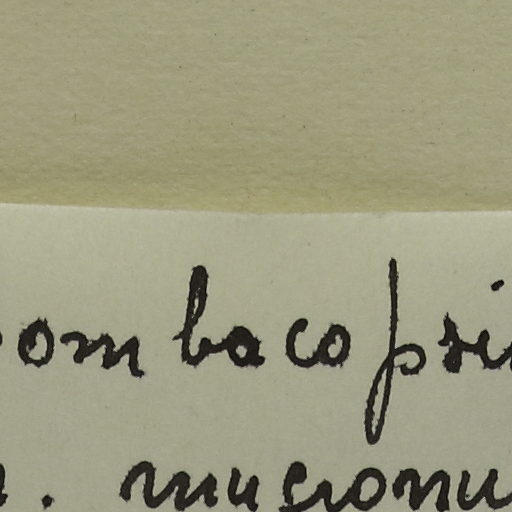 ombacopsi
. mucronu